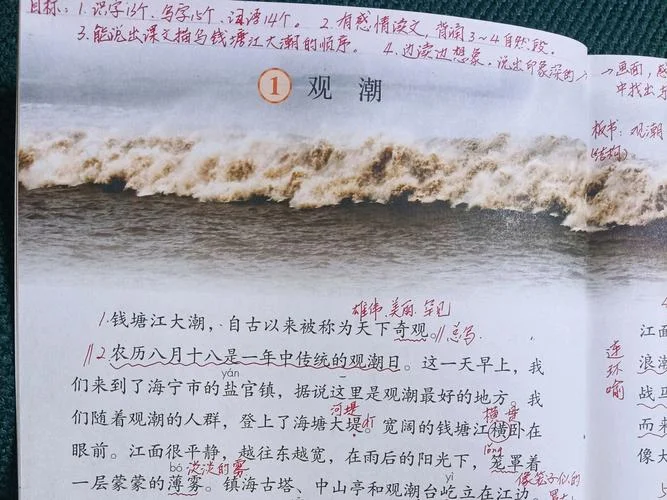 目标：1.识字13个、写字15个、词语14个。 2.有感情读文，背诵3~4自然段。
3.能说出课文描写钱塘江大潮的顺序。 4.边读边想象。说出印象深的
→画面，
中找出
板书：观潮
(结构)
1 观潮
雄伟 美丽 罕见
1.钱塘江大潮，自古以来被称为天下奇观。//总写
//2农历八月十八是一年中传统的观潮日。这一天早上，我
yán
们来到了海宁市的盐官镇，据说这里是观潮最好的地方。我
河堤 横是
们随着观潮的人群，登上了海塘大堤。宽阔的钱塘江横卧在
眼前。江面很平静，越往东越宽，在雨后的阳光下，笼罩着
lǒng
bó 淡淡的雾 yì 像笼子似的
一层蒙蒙的薄雾。镇海古塔、中山亭和观潮台屹立在江边。
江面
连环喻
浪潮
战
而来
像大